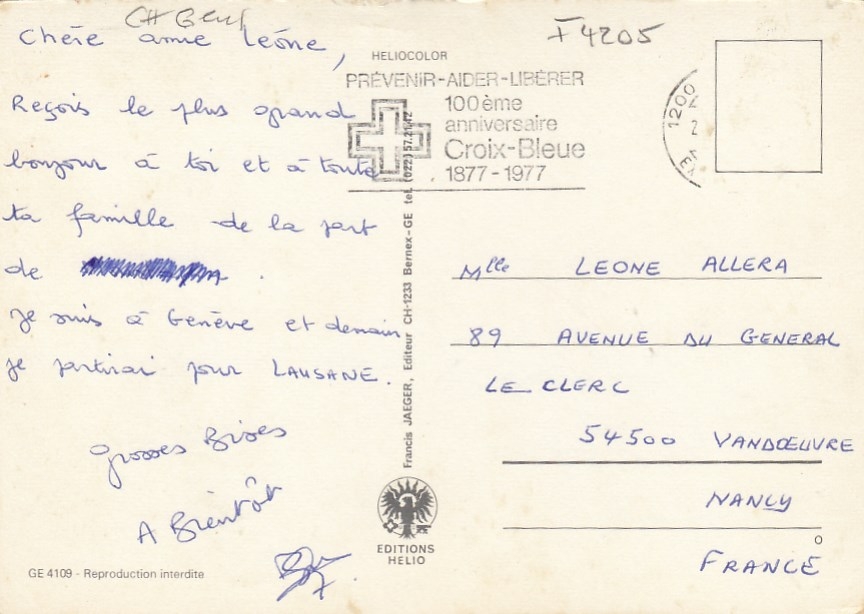 CH Genf
Chère amie Leóne,
Reçois le plus grand
bonjour à toi et à toute
ta famille de la part
de
je suis à Genève et demain
je partirai pour LAUSANE.
Grosses Bises
A Bientôt
GE 4109 - Reproduction interdite
HELIOCOLOR
PRÉVENIR-AIDER-LIBÉRER
100ème
anniversaire
Croix-Bleue
1877-1977
Francis JAEGER, Editeur CH-1233 Bernex-GE tel. (022) 57.21.42
EDITIONS
HELIO
F 4205
1200
Mlle LEONE ALLERA
89 AVENUE DU GENERAL
LE CLERC
54500 VANDŒUVRE
NANCY
FRANCE